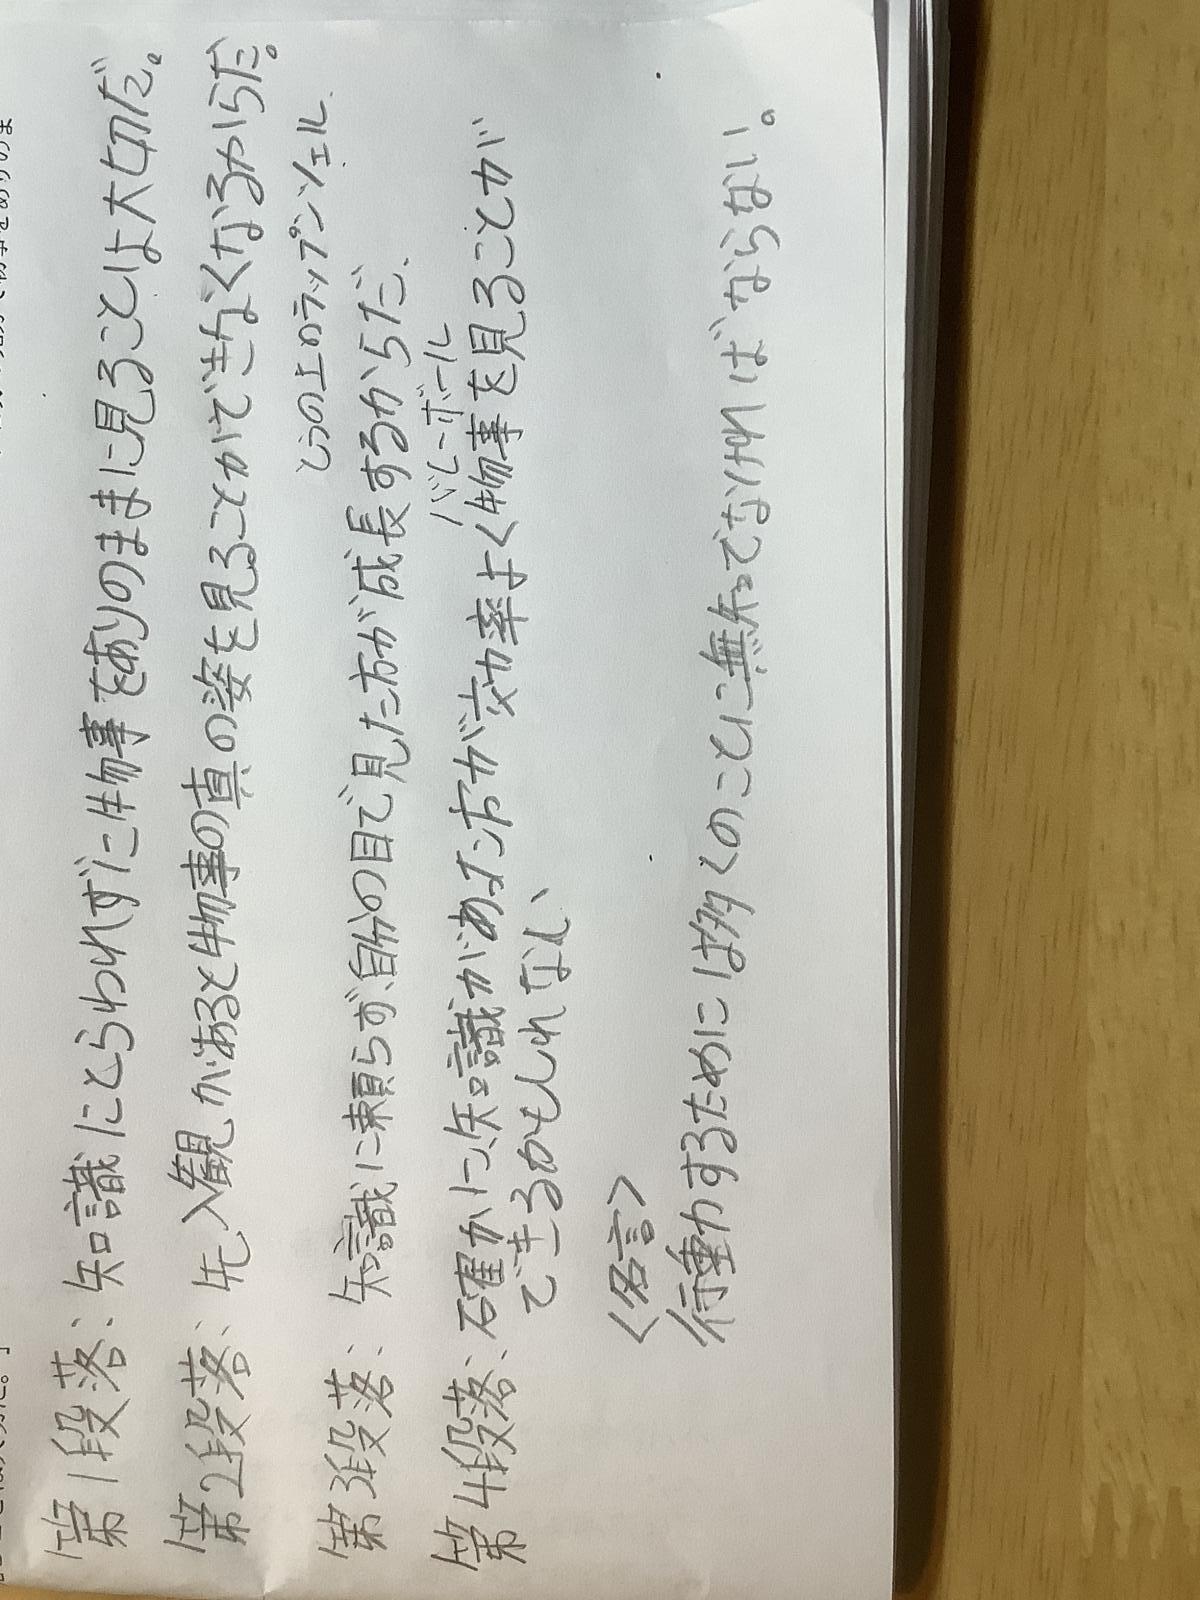 第1段落:知識にとらわれずに物事をありのままに見ることは大切だ。
第2段落:先入観があると物事の真の姿を見ることができなくなるからだ。
とうの上のラップンツェル
第3段落:知識に頼らず、自分の目で見た方が成長するからだ。
バレーボール
第4段落:確かに、知識があった方が効率よく物事を見ることが
できるかもしれない
<名言>
行動するためには多くのことに無知でなければならない。